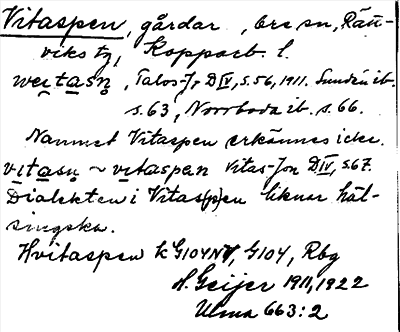 Vitaspen, gårdar, Ore sn, Rätt-
viks tg, Kopparb. l.
wei̯tasn̥, Talos-Jr D IV, s. 56, 1911. Sundin ib.
s. 63, Norrboda ib. s. 66.
Namnet Vitaspen erkännes icke.
vitasn̥ ~ vitaspan Vitas-Jon D IV, s. 67.
Dialekten i Vitas(p)en liknar häl-
singska.
Hvitaspen k G104NV, G104, Rbg
H. Geijer 1911, 1922
Ulma 663:2